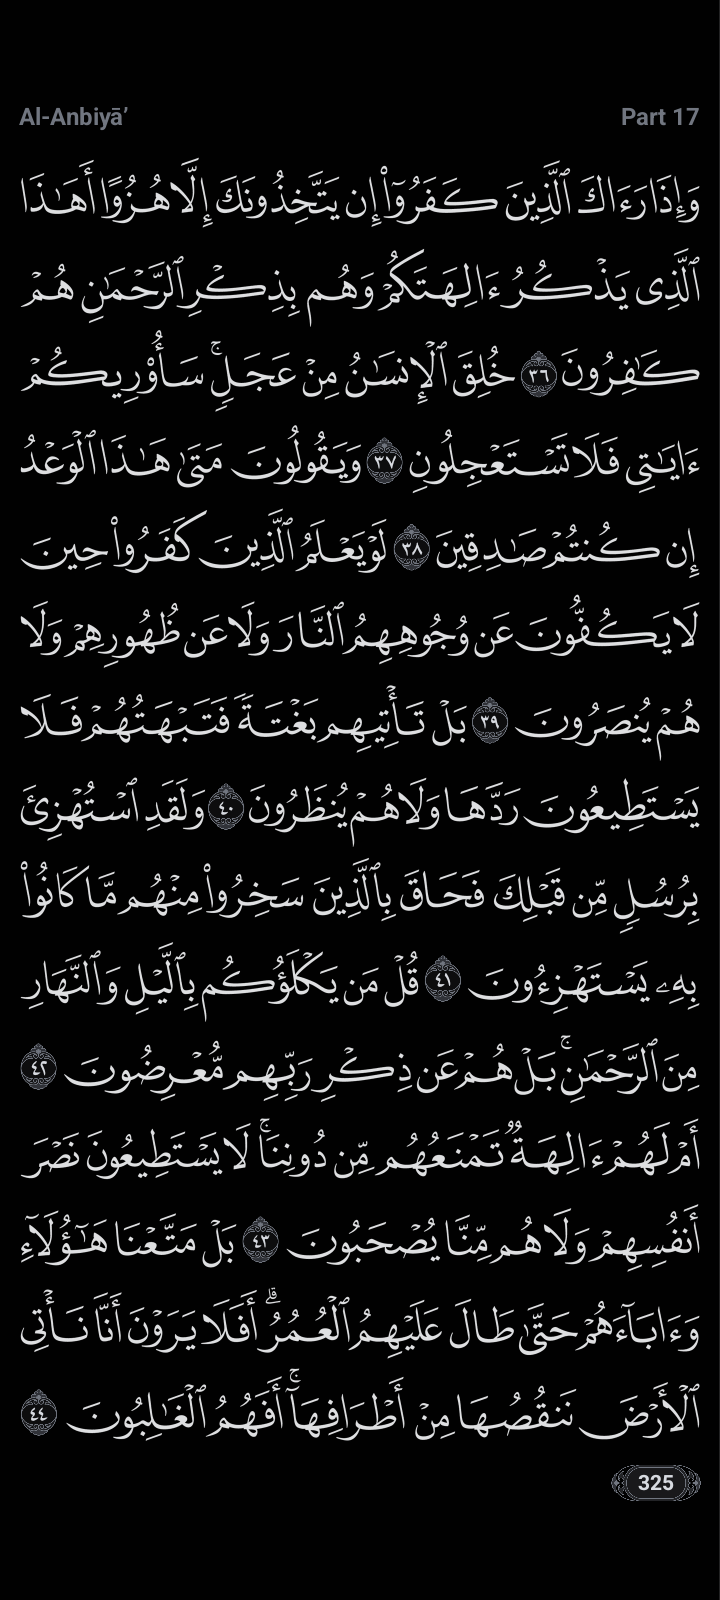 Al-Anbiyā’ Part 17
وَإِذَا رَءَاكَ ٱلَّذِينَ كَفَرُوٓا۟ إِن يَتَّخِذُونَكَ إِلَّا هُزُوًا أَهَـٰذَا
ٱلَّذِى يَذْكُرُ ءَالِهَتَكُمْ وَهُم بِذِكْرِ ٱلرَّحْمَـٰنِ هُمْ
كَـٰفِرُونَ ٣٦ خُلِقَ ٱلْإِنسَـٰنُ مِنْ عَجَلٍۢ ۚ سَأُو۟رِيكُمْ
ءَايَـٰتِى فَلَا تَسْتَعْجِلُونِ ٣٧ وَيَقُولُونَ مَتَىٰ هَـٰذَا ٱلْوَعْدُ
إِن كُنتُمْ صَـٰدِقِينَ ٣٨ لَوْ يَعْلَمُ ٱلَّذِينَ كَفَرُوا۟ حِينَ
لَا يَكُفُّونَ عَن وُجُوهِهِمُ ٱلنَّارَ وَلَا عَن ظُهُورِهِمْ وَلَا
هُمْ يُنصَرُونَ ٣٩ بَلْ تَأْتِيهِم بَغْتَةًۭ فَتَبْهَتُهُمْ فَلَا
يَسْتَطِيعُونَ رَدَّهَا وَلَا هُمْ يُنظَرُونَ ٤٠ وَلَقَدِ ٱسْتُهْزِئَ
بِرُسُلٍۢ مِّن قَبْلِكَ فَحَاقَ بِٱلَّذِينَ سَخِرُوا۟ مِنْهُم مَّا كَانُوا۟
بِهِۦ يَسْتَهْزِءُونَ ٤١ قُلْ مَن يَكْلَؤُكُم بِٱلَّيْلِ وَٱلنَّهَارِ
مِنَ ٱلرَّحْمَـٰنِ ۚ بَلْ هُمْ عَن ذِكْرِ رَبِّهِم مُّعْرِضُونَ ٤٢
أَمْ لَهُمْ ءَالِهَةٌۭ تَمْنَعُهُم مِّن دُونِنَا ۚ لَا يَسْتَطِيعُونَ نَصْرَ
أَنفُسِهِمْ وَلَا هُم مِّنَّا يُصْحَبُونَ ٤٣ بَلْ مَتَّعْنَا هَـٰٓؤُلَآءِ
وَءَابَآءَهُمْ حَتَّىٰ طَالَ عَلَيْهِمُ ٱلْعُمُرُ ۗ أَفَلَا يَرَوْنَ أَنَّا نَأْتِى
ٱلْأَرْضَ نَنقُصُهَا مِنْ أَطْرَافِهَآ ۚ أَفَهُمُ ٱلْغَـٰلِبُونَ ٤٤
325